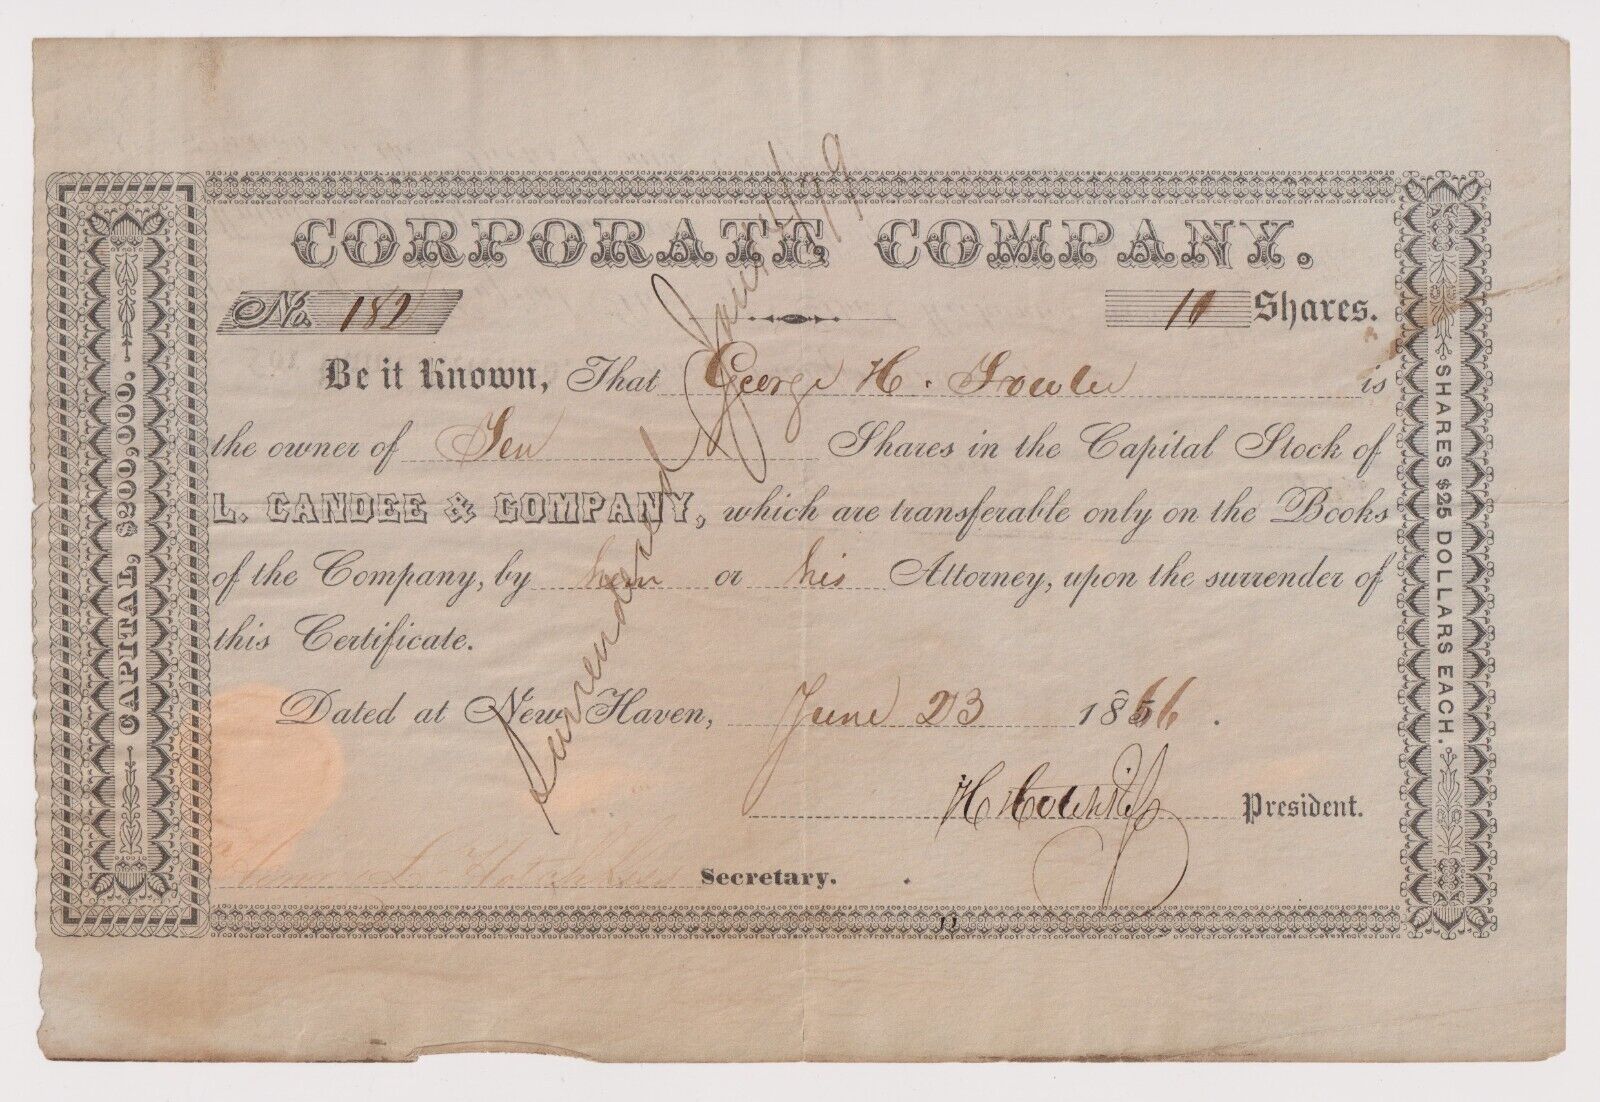 CORPORATE COMPANY.
No. 182
10 Shares.
Be it Known, That George H. is
the owner of Ten Shares in the Capital Stock of
L. CANDEE & COMPANY, which are transferable only on the Books
of the Company, by him or his Attorney, upon the surrender of
this Certificate.
Dated at New Haven, June 23 1866.
H Hotchkiss President.
L Hotchkiss Secretary.
CAPITAL, $200,000.
SHARES $25 DOLLARS EACH.
Surrendered